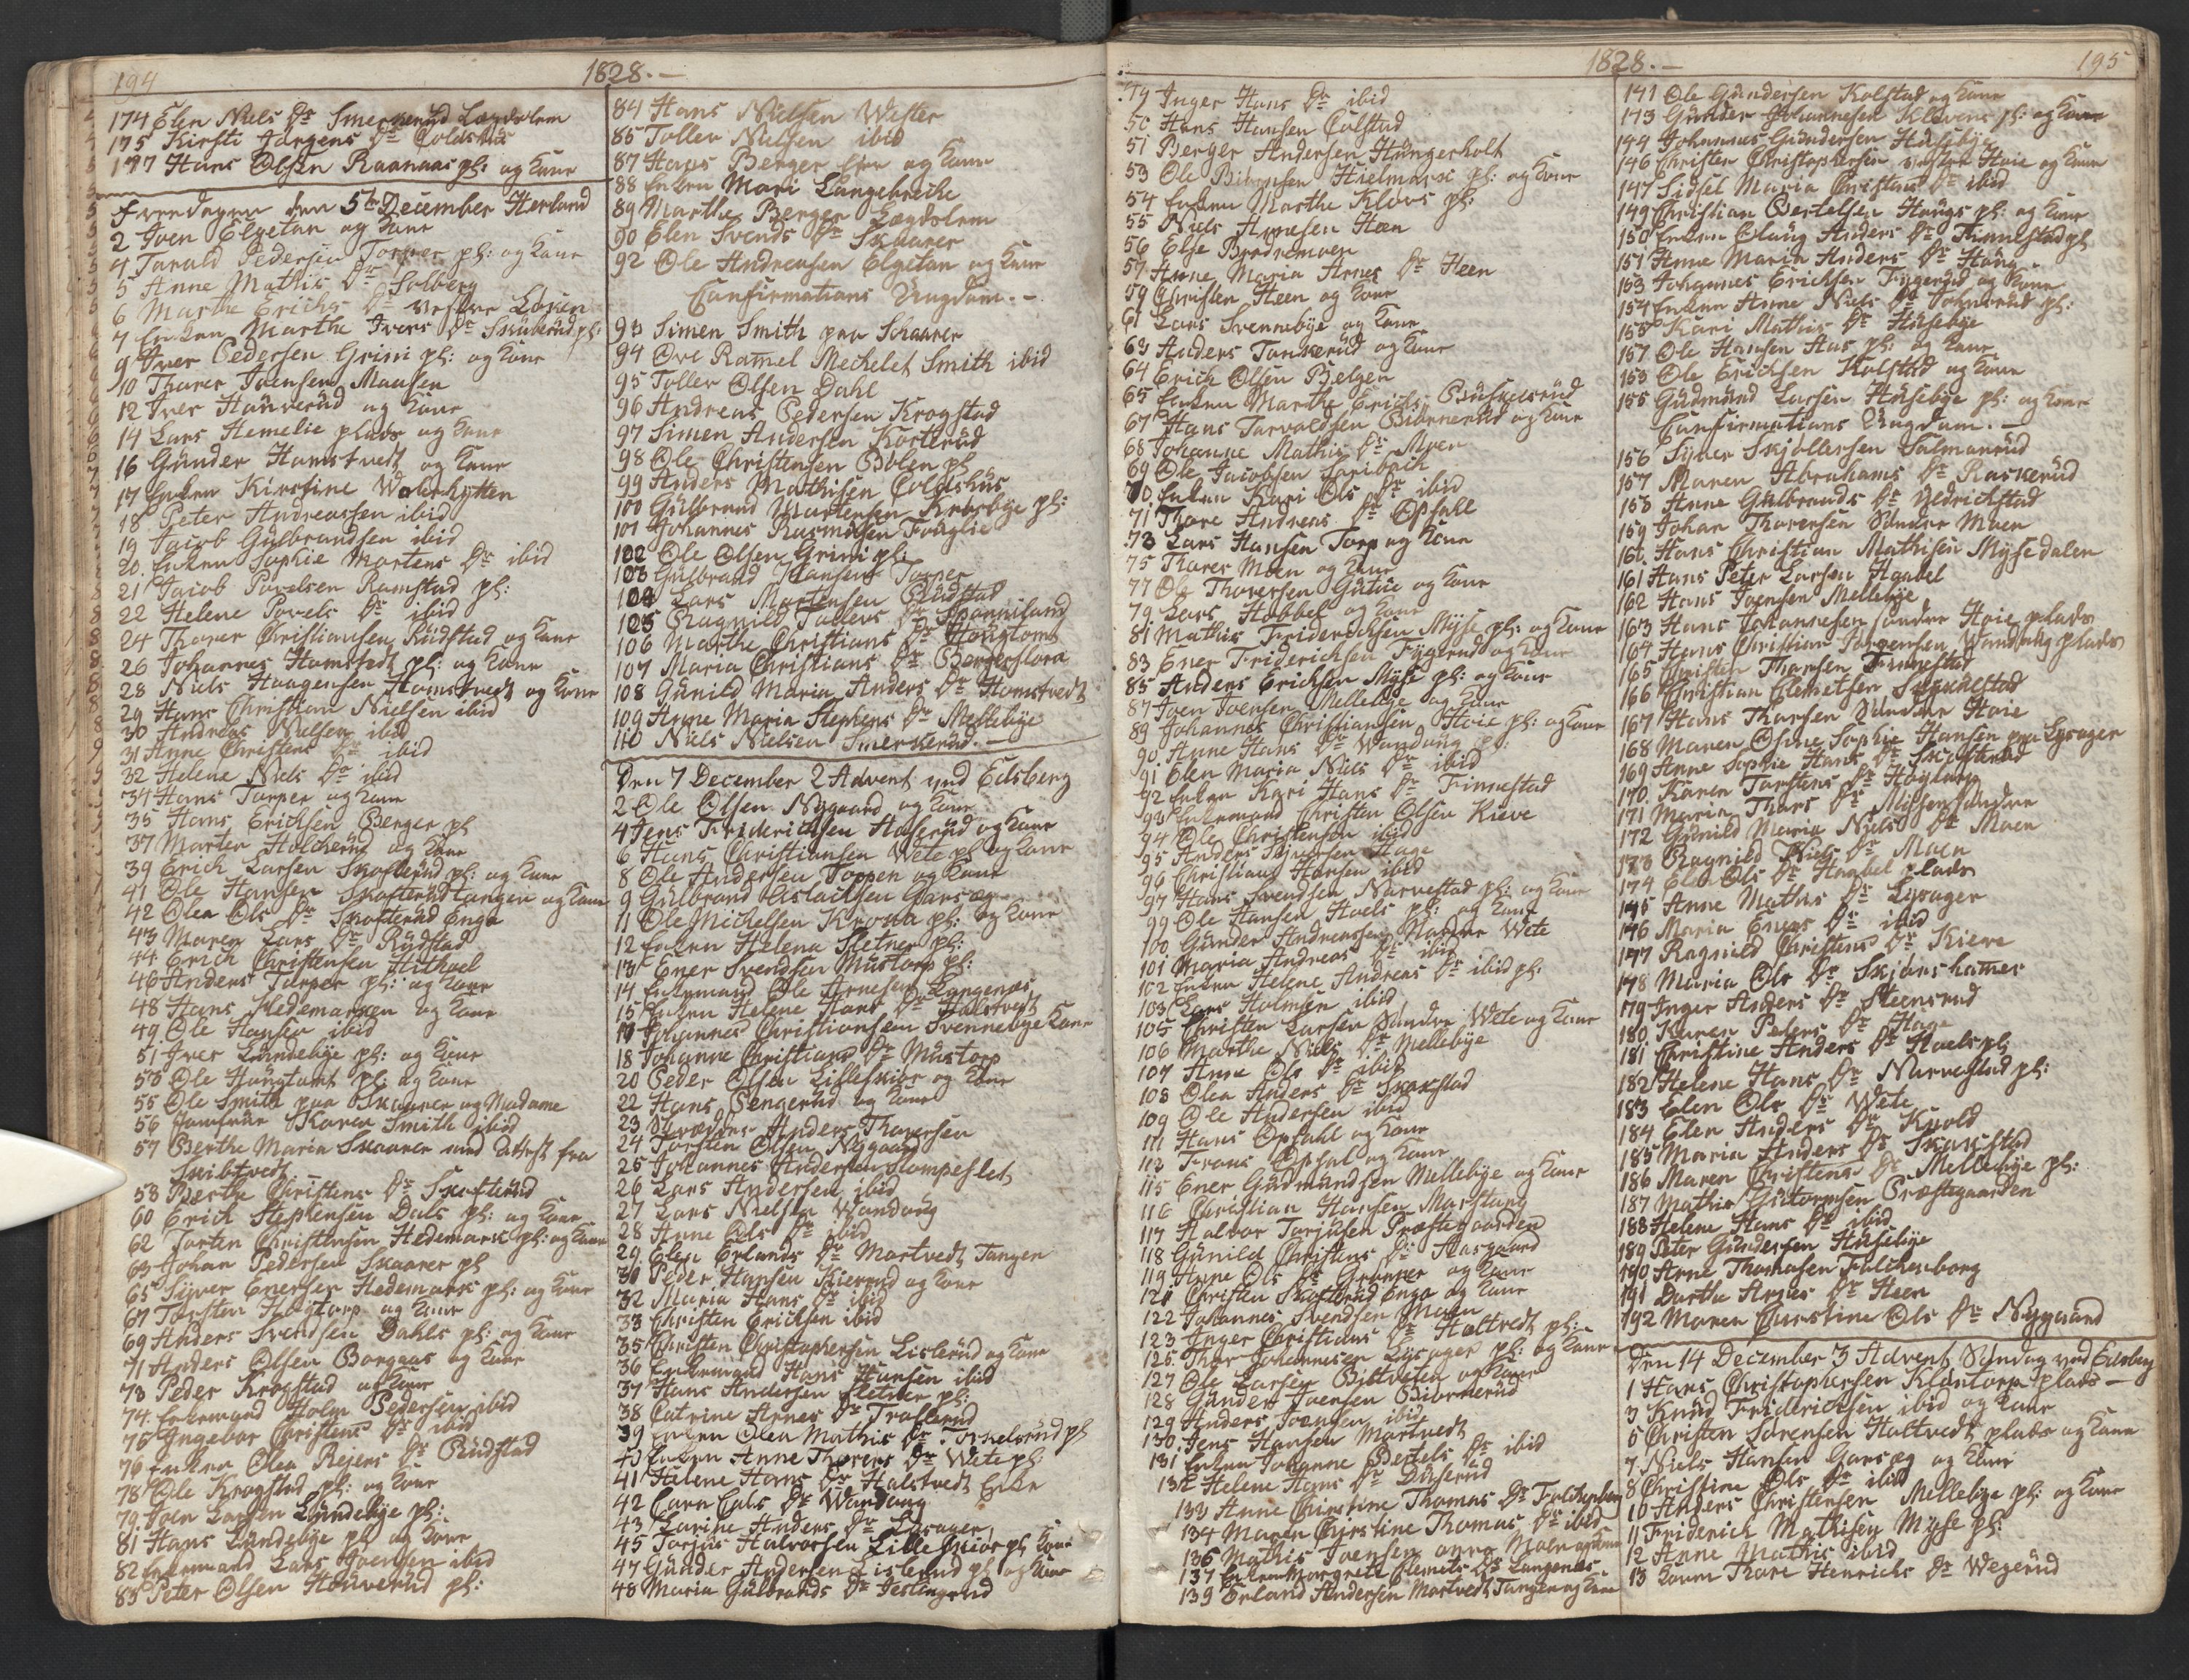 194
1828.
174 Elen Niels Dr Smerkerud Lægdslem
175 Kirsti Jørgens Dr Coldshus
177 Hans Olsen Raanaas pl: og Kone
Fredagen den 5te December Herland
2 Joen Elgetun og Kone
4 Tarald Pedersen Torper pl: og Kone
5 Anne Mathis Dr Solberg
6 Marthe Erichs Dr vestre Løken
7 Enken Marthe Ivers Dr Skuberud pl:
9 Iver Pedersen Grini pl: og Kone
10 Thorer Joensen Monsen
12 Iver Houverud og Kone
14 Lars Hemelie plads og Kone
16 Gunder Homstvedt og Kone
17 Enken Kirstine
18 Peter Andreassen ibid
19 Jacob Gulbrandsen ibid
20. Enken Sophie Mortens Dr ibid
21 Jacob Povelsen Ramstad pl:
22 Helene Povels Dr ibid
24 Thorer Christiansen Rudstad og Kone
26 Johannes Homstedt pl: og Kone
28 Niels Haagensen Homstvedt og Kone
29 Hans Christian Nielsen ibid
30 Andreas Nielsen ibid
31 Anne Christens Dr ibid
32 Helene Niels Dr ibid
34 Hans Torper og Kone
35 Hans Erichsen Berger pl
37 Morten Holcherud og Kone
39 Erich Larsen Skofterud pl: og Kone
41 Ole Hansen Skofterudtangen og Kone
42 Olea Ols Dr Skofterud Enga
43 Maren Lars Dr Rudstad
44 Erich Christensen Hithoel
46 Anders Torper pl: og Kone
48 Hans Hedemarken og Kone
49 Ole Hansen ibid
51 Iver Lundebye pl: og Kone
53 Ole Hougtomt pl: og Kone
55 Ole Smith paa Skaarer og Madame
56 Jomfrue Karen Smith ibid
57 Berthe Maria Skaarer med Attest fra
Skibtvedt. -
58 Berthe Christens Dr Skofterud
60 Erich Stephensen Dals pl: og Kone
62 Torten Christensen Hedemark pl: og Kone
63 Johan Pedersen Skaarer pl
65 Syver Enersen Hedemark pl: og Kone
67 Torsten Høytorp og Kone
69 Anders Svendsen Dahls pl: og Kone
71 Anders Olsen Borgaas og Kone
73 Peder Krogstad og Kone
74. Enkemand Holm Pedersen ibid
75 Ingebor Christens Dr ibid
76 Enken Olea Reiers Dr Rudstad
78 Ole Krogstad pl: og Kone
79. Joen Larsen Lundebye pl:
81. Hans Lundebye pl og Kone
82 Enkemand Lars Joensen ibid
83 Peter Olsen Houverud pl:
84 Hans Nielsen Wester
85 Toller Nielsen ibid
87 Hans Berger Eier og Kone
88 Enken Mari Langebreche
89 Marthe Berger Lægdslem
90 Elen Svends Dr Skaarer
92 Ole Andreasen Elgetun og Kone
Confirmations Ungdom. -
93 Simen Smith paa Schaarer
94 Ove Ramel Mechelet Smith ibid
95 Toller Olsen Dahl
96 Andreas Pedersen Krogstad
97 Simen Andersen Korterud
98 Ole Christensen Bølen pl
99 Anders Mathisen Coldshus
100 Gulbrand Mortensen pl:
101 Johannes Rasmusen Fouglie
102 Ole Olsen Grini pl:
103 Gulbrand Hansen Torper
104 Lars Mortensen Rudstad
105 Ragnild Tollers Dr Spanniland
106 Marthe Christians Dr Hougtomt
107 Maria Christians Dr Bergersflora
108 Gunild Maria Anders Dr Homstvedt
109 Anne Maria Stephens Dr Mellebye
110 Niels Nielsen Smerkerud. -
Den 7 December 2 Advent ved Edsberg
2 Ole Olsen Nygaard og Kone
4 Jens Friderichsen Haserud og Kone
6 Hans Christiansen Wete pl og Kone
8 Ole Andersen Toppen og Kone
9 Gulbrand Aslachsen Garsæg
11 Ole Michelsen Krosta pl: og Kone
12 Enken Helena Sletner pl:
13 Ener Svendsen Mustorp pl:
14 Enkemand Ole Arnesen Langenæs
15 Enken Helene Hans Dr Halstvedt
17 Johannes Christiansen Svennebye Kone
18 Johanne Christians Dr Mustorp
20 Peder Olsen Lilleskior og Kone
22 Hans Sengerud og Kone
23 Skræder Anders Thoversen
24 Torsten Olsen Nygaard
25 Johannes Andersen Slompeslet
26 Lars Andersen ibid
27 Lars Nielsen Wandung
28 Anne Ols Dr ibid
29. Elen Erlands Dr Mortvedt Tangen
30 Peder Hansen Kierrud og Kone
32 Maria Hans Dr ibid
33 Christen Erichsen ibid
35 Christen Christophersen Lislerud og Kone
36 Enkemand Hans Hansen ibid
37 Hans Andersen Sletner pl:
38 Catrine Arnes Dr Traflerud
39 Enken Olea Mathis Dr Torkelsrud pl
40 Enken Anne Thorers Dr Wete pl:
41 Helene Hans Dr Halstvedt Enke
42 Carn Cals Dr Wandung
43 Karine Anders Dr Lysager
45 Torjus Halvorsen Lilleskior pl Kone
47 Gunder Andersen Lislerud pl og Kone
48 Maria Gulbrands Dr Jestingrud
1828. -
195
49 Inger Hans Dr ibid
50 Hans Hansen Colstad
51 Berger Andersen Hungerholt
53 Ole Hielmark pl: og Kone
54 Enken Marthe Kløvs pl:
55 Niels Arnesen Heen
56 Else Brødremoen
57 Anne Maria Arnes Dr Heen
59 Christen Heen og Kone
61 Lars Svennebye og Kone
63 Anders Tonkerud og Kone
64 Erich Olsen Belgen
65 Enken Marthe Erichs Buskelsrud
67 Hans Torvaldsen Biørnerud og Kone
68 Johanne Mathis Dr Moen
69 Ole Jacobsen Løribach
70. Enken Kari Ols Dr ibid
71 Thore Andreas Dr Opsahl
73 Lars Hansen Torp og Kone
75 Thorer Moen og Kone
77 Ole Thoversen Gutue og Kone
79 Lars Hobbel og Kone
81 Mathis Friderichsen Myse pl: og Kone
83 Ener Friderichsen Fygerud og Kone
85 Anders Erichsen Myse pl: og Kone
87 Joen Joensen Mellebye og Kone
89 Johannes Christiansen Hoie pl: og Kone
90. Anne Hans Dr Wandung pl:
91 Elen Maria Niels Dr ibid
92 Enken Kari Hans Dr Finnestad
93 Enkemand Christen Olsen Kieve
94 Ole Christensen ibid
95 Anders Syversen Hage
96 Christian Hansen ibid
97 Hans Svendsen Narvestad pl: og Kone
99 Ole Hansen Haels pl: og Kone
100 Gunder Andreassen Nordre Wete
101 Maria Andreas Dr ibid
102 Enken Helene Andreas Dr ibid pl:
103 Lars Holmsen ibid
105 Christen Larsen Søndre Wete og Kone
106 Marthe Niels Dr Mellebye
107 Anne Ols Dr ibid
108 Olea Anders Dr Skakstad
109 Ole Andersen ibid
111 Hans Opsahl og Kone
113 Frans Opsal og Kone
115 Ener Gudmundsen Mellebye og Kone
116 Christian Hansen Morstang
117 Halvor Torjusen Præstegaarden
118 Gunild Christens Dr Aasgaard
119 Anne Ols Dr Grønner og Kone
121 Christen Skofterud Enga og Kone
122 Johannes Svendsen Moen
123 Inger Christians Dr Holtvedt pl:
125. Thor Johannesen Lysager pl: og Kone
127 Ole Larsen Bøltveten og Kone
128 Gunder Joensen Biørnerud
129 Anders Joensen ibid
130. Jens Hansen Mortvedt
131 Enken Johanne Bertels Dr ibid
132 Helene Hans Dr Duserud
133 Anne Chirstine Thomas Dr Falchenborg
134 Maren Chirstine Thomas Dr ibid
136 Mathis Joensen øvre Moen og Kone
137 Enken Margrete Clemets Dr Langenæs
139 Erland Andersen Mortvedt Tangen og Kone
141 Ole Gundersen Kolstad og Kone
143 Gunder Johannesen Kløvens pl: og Kone
144 Johannes Gundersen Husebye
146 Christen Christophersen vestre Hoie og Kone
147 Sidsel Maria Christens Dr ibid
149 Christian Bertelsen Hougs pl: og Kone
150 Enken Olaug Anders Dr Finnestad pl
151 Anne Maria Anders Dr Houg
153 Johannes Erichsen Fygerud og Kone
154 Enken Anne Niels Dr pl:
155 Kari Mathis Dr Husebye
157 Ole Hansen Aas pl: og Kone
153 Ole Erichsen Kolstad og Kone
155 Gudmund Larsen Husebye pl: og Kone
Confirmations Ungdom. -
156 Syver Skjøllersen Salmonrud
157 Maren Abrahams Dr Raskerud
158 Anne Gulbrands Dr Hedrichstad
159 Johan Thorersen Søndre Moen
160. Hans Christian Mathisen Mysedalen
161 Hans Peter Larsen Haabel
162 Hans Joensen Mellebye
163 Hans Johannesen søndre Hoie plads
164 Hans Christian Jørgensen Wandung plads
165 Christen Thorsen Finnestad
166 Christian Clemetsen
167 Hans Thorsen Søndre Hoie
168 Maren Oline Sophie Hansen paa Lysager
169 Anne Sophie Hans Dr Skofterud
170. Karen Torstens Dr Høytorp
171 Maria Thors Dr Missen søndre
172 Gunild Maria Niels Dr Moen
173 Ragnild Niels Dr Moen
174 Elen Ols Dr Haabel plads
175 Anne Mathis Dr Lysager
176 Maria Eners Dr ibid
177 Ragnild Christens Dr Kieve
178 Maria Ols Dr Skjønshamer
179 Inger Anders Dr Steensrud
180. Karen Peders Dr Hage
181 Christine Anders Dr Haels pl:
182 Helene Hans Dr Narvestad pl:
183 Elen Ols Dr Wete
184 Elen Anders Dr Knold
185 Maria Anders Dr Skakstad
186 Maren Christens Dr Mellebye pl:
187 Mathis Gutormsen Præstegaarden
188 Helene Hans Dr ibid
189 Peter Gundersen Husebye
190 Arne Thomasen Falchenborg
191 Dorthe Arnes Dr Heen
192 Maren Chirstine Ols Dr Nygaard
Den 14 December 3 Advent Søndag ved Edsberg
1 Hans Christophersen Klontorp plads -
3 Knud Friderichsen ibid og Kone
5 Christen Sørensen Holtvedt plads og Kone
7. Niels Hansen Garsæg og Kone
8 Christine Ols Dr ibid
10 Anders Christensen Mellebye pl: og Kone
11 Friderich Mathisen Myse pl:
12 Anne Mathis ibid
13 Konen Thore Henrichs Dr Wegerud